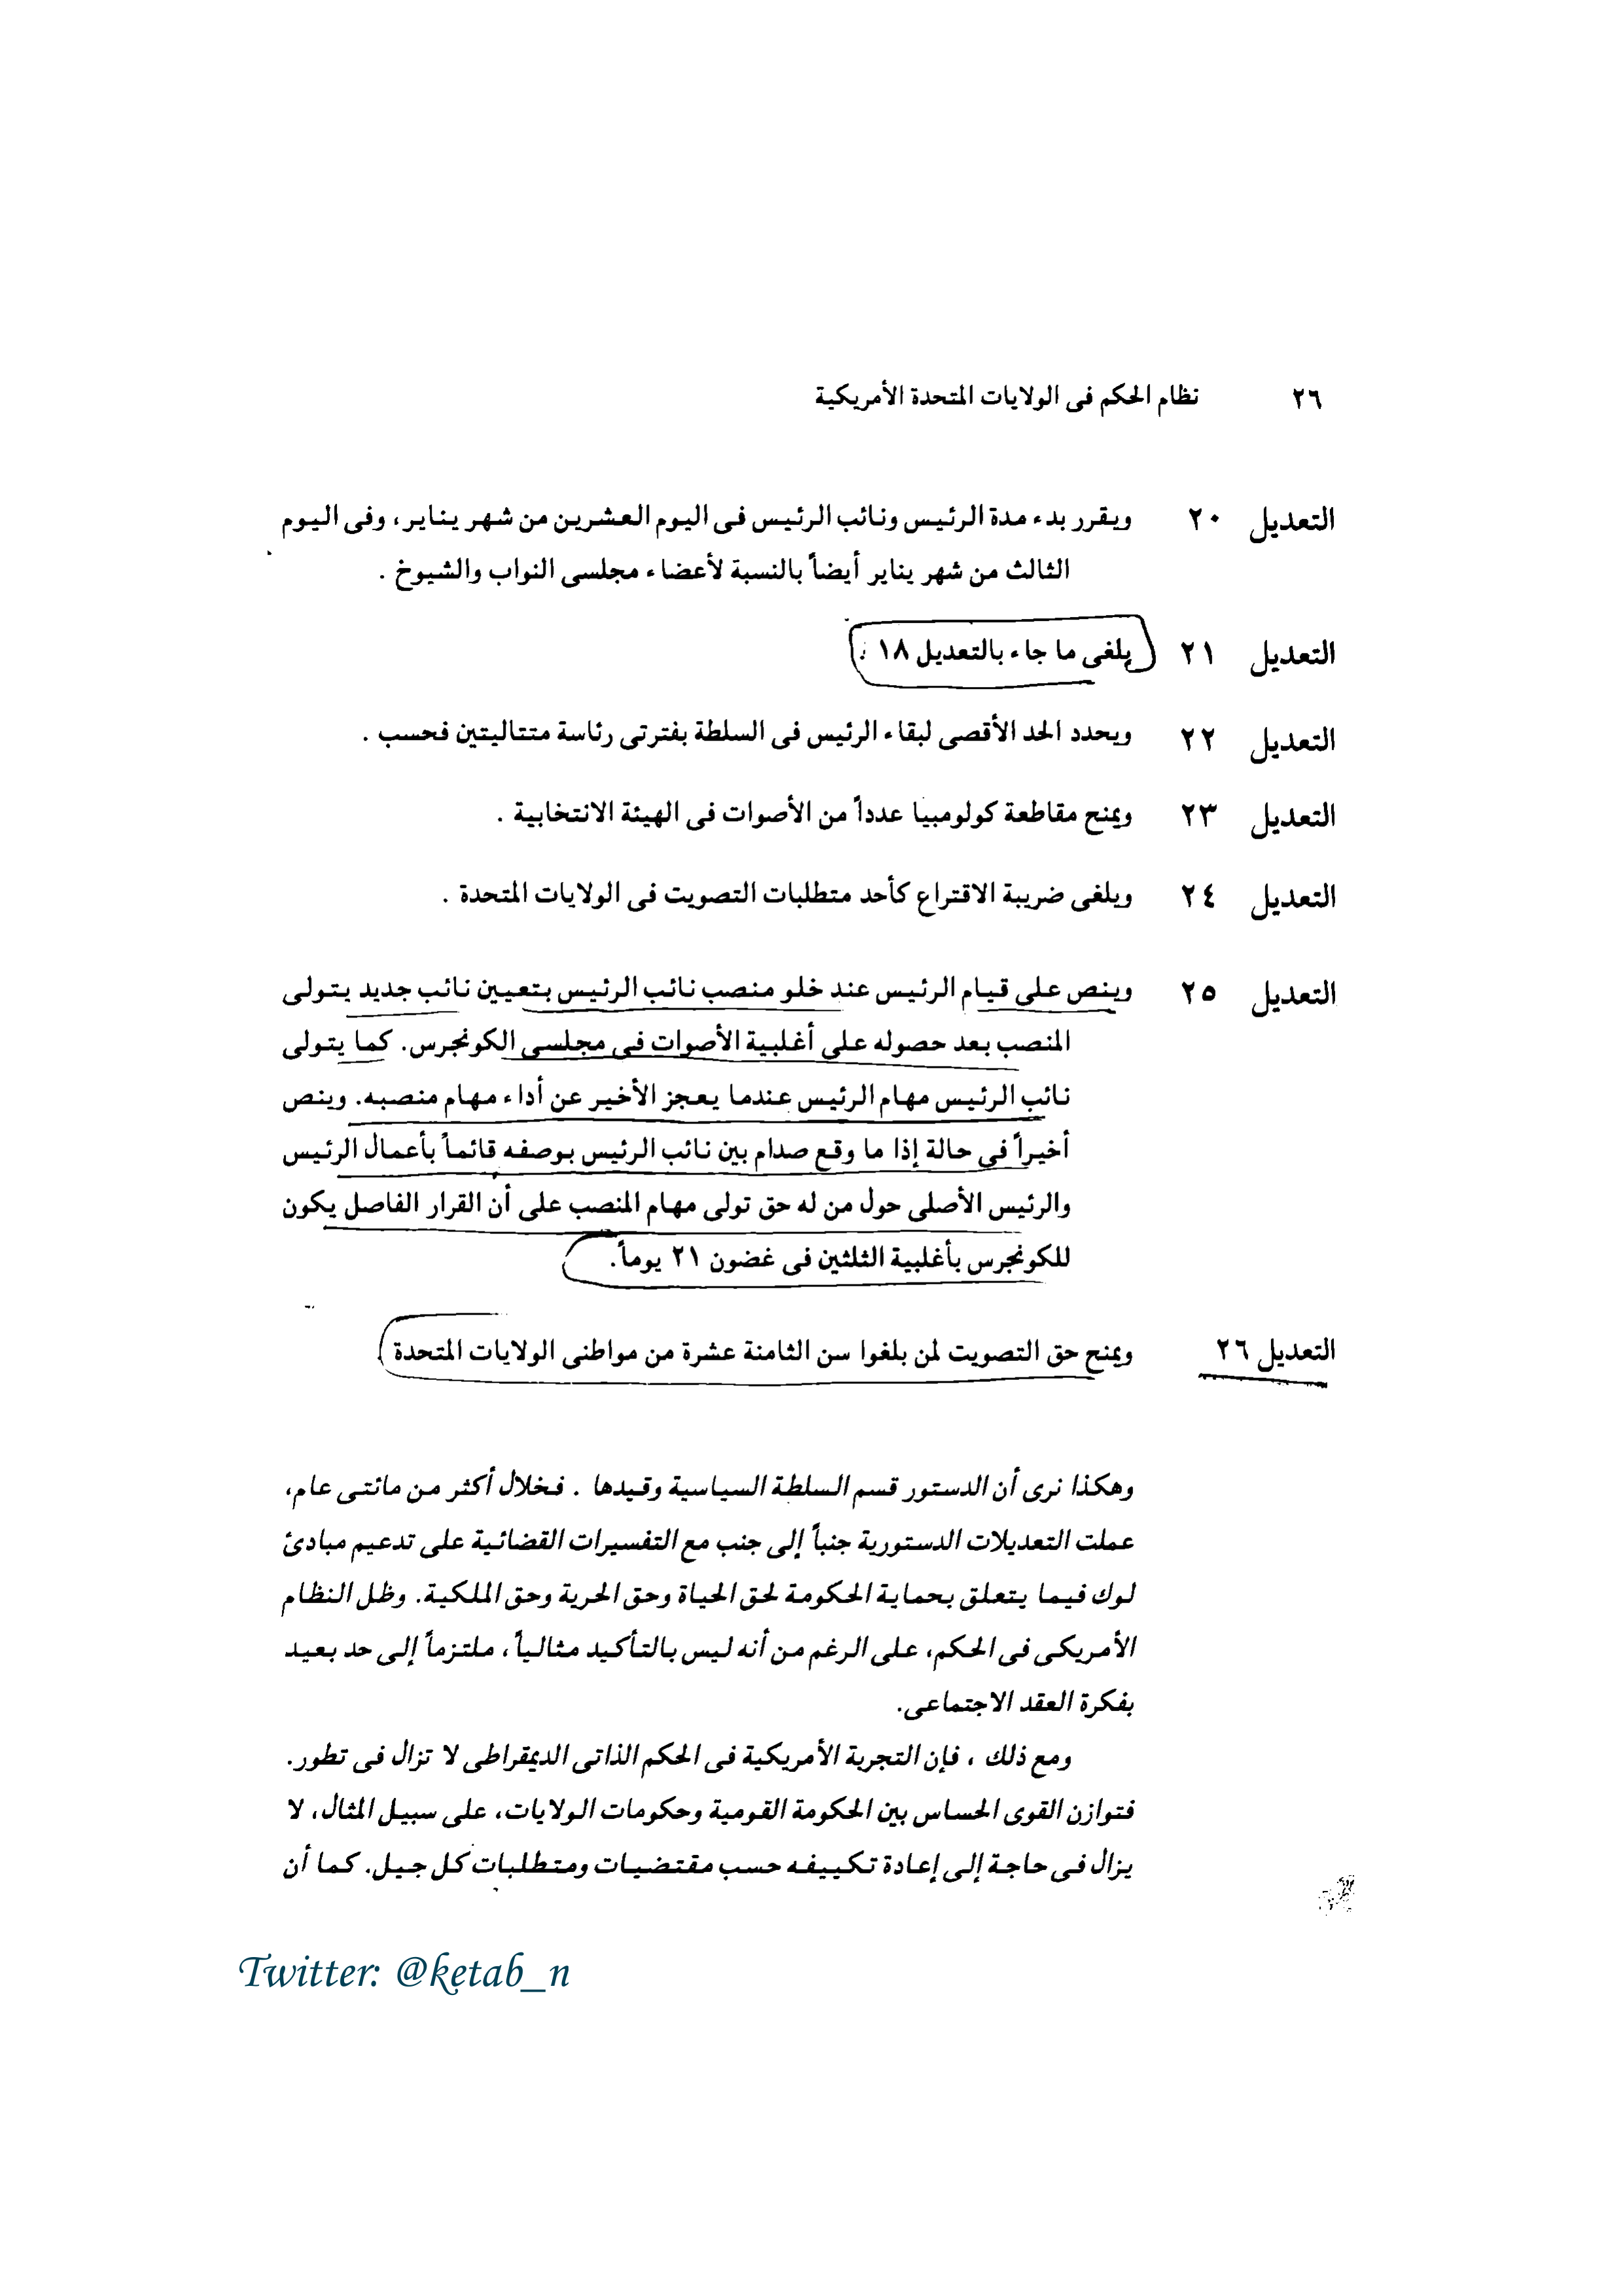 ٢٦ نظام الحكم فى الولايات المتحدة الأمريكية
التعديل ٢٠ ويقرر بدء مدة الرئيس ونائب الرئيس فى اليوم العشرين من شهر يناير، وفى اليوم
الثالث من شهر يناير أيضاً بالنسبة لأعضاء مجلسى النواب والشيوخ .
التعديل ٢١ يلغى ما جاء بالتعديل ١٨ .
التعديل ٢٢ ويحدد الحد الأقصى لبقاء الرئيس فى السلطة بفترتى رئاسة متتاليتين فحسب .
التعديل ٢٣ ويمنح مقاطعة كولومبيا عدداً من الأصوات فى الهيئة الانتخابية .
التعديل ٢٤ ويلغى ضريبة الاقتراع كأحد متطلبات التصويت فى الولايات المتحدة .
التعديل ٢٥ وينص على قيام الرئيس عند خلو منصب نائب الرئيس بتعيين نائب جديد يتولى
المنصب بعد حصوله على أغلبية الأصوات فى مجلسى الكونجرس. كما يتولى
نائب الرئيس مهام الرئيس عندما يعجز الأخير عن أداء مهام منصبه. وينص
أخيراً فى حالة إذا ما وقع صدام بين نائب الرئيس بوصفه قائماً بأعمال الرئيس
والرئيس الأصلى حول من له حق تولى مهام المنصب على أن القرار الفاصل يكون
للكونجرس بأغلبية الثلثين فى غضون ٢١ يوماً.
التعديل ٢٦ ويمنح حق التصويت لمن بلغوا سن الثامنة عشرة من مواطنى الولايات المتحدة .
وهكذا نرى أن الدستور قسم السلطة السياسية وقيدها . فخلال أكثر من مائتى عام،
عملت التعديلات الدستورية جنباً إلى جنب مع التفسيرات القضائية على تدعيم مبادئ
لوك فيما يتعلق بحماية الحكومة لحق الحياة وحق الحرية وحق الملكية. وظل النظام
الأمريكى فى الحكم، على الرغم من أنه ليس بالتأكيد مثالياً، ملتزماً إلى حد بعيد
بفكرة العقد الاجتماعى.
ومع ذلك ، فإن التجربة الأمريكية فى الحكم الذاتى الديمقراطى لا تزال فى تطور.
فتوازن القوى الحساس بين الحكومة القومية وحكومات الولايات، على سبيل المثال، لا
يزال فى حاجة إلى إعادة تكييفه حسب مقتضيات ومتطلبات كل جيل. كما أن
Twitter: @ketab_n